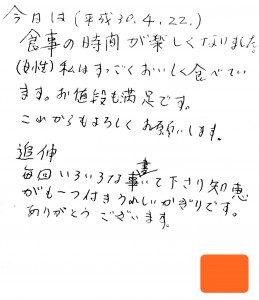 今日は(平成30.4.22.)
食事の時間が楽しくなりました。
(女性)私はすっごくおいしく食べてい
ます。お値段も満足です。
これからもよろしくお願いします。
追伸
毎回いろいろな事書いて下さり知恵
がも一つ付きうれしいかぎりです。
ありがとうございます。